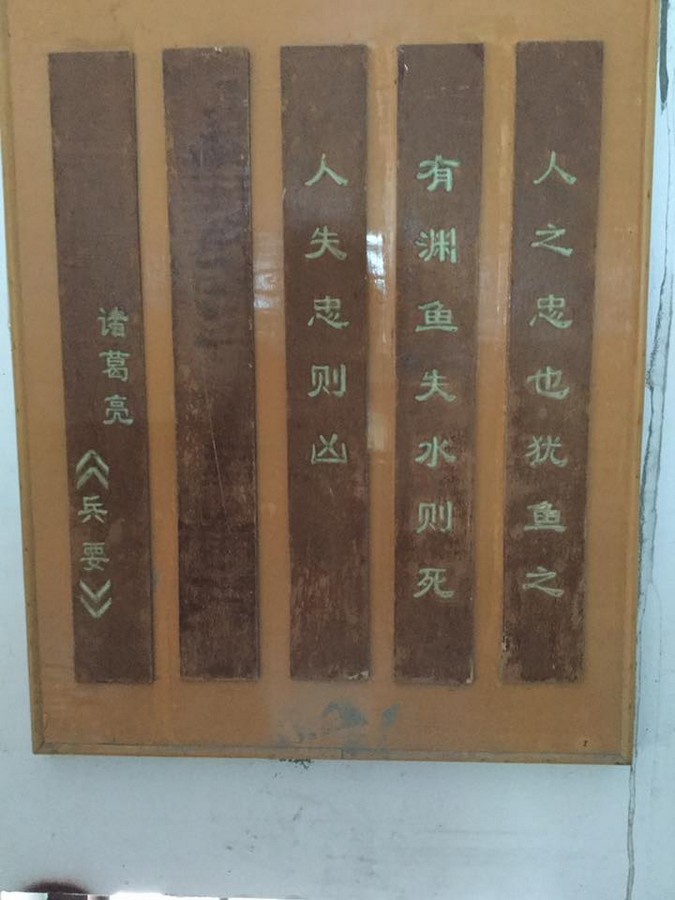 人之忠也犹鱼之
有渊鱼失水则死
人失忠则凶
诸葛亮
《兵要》